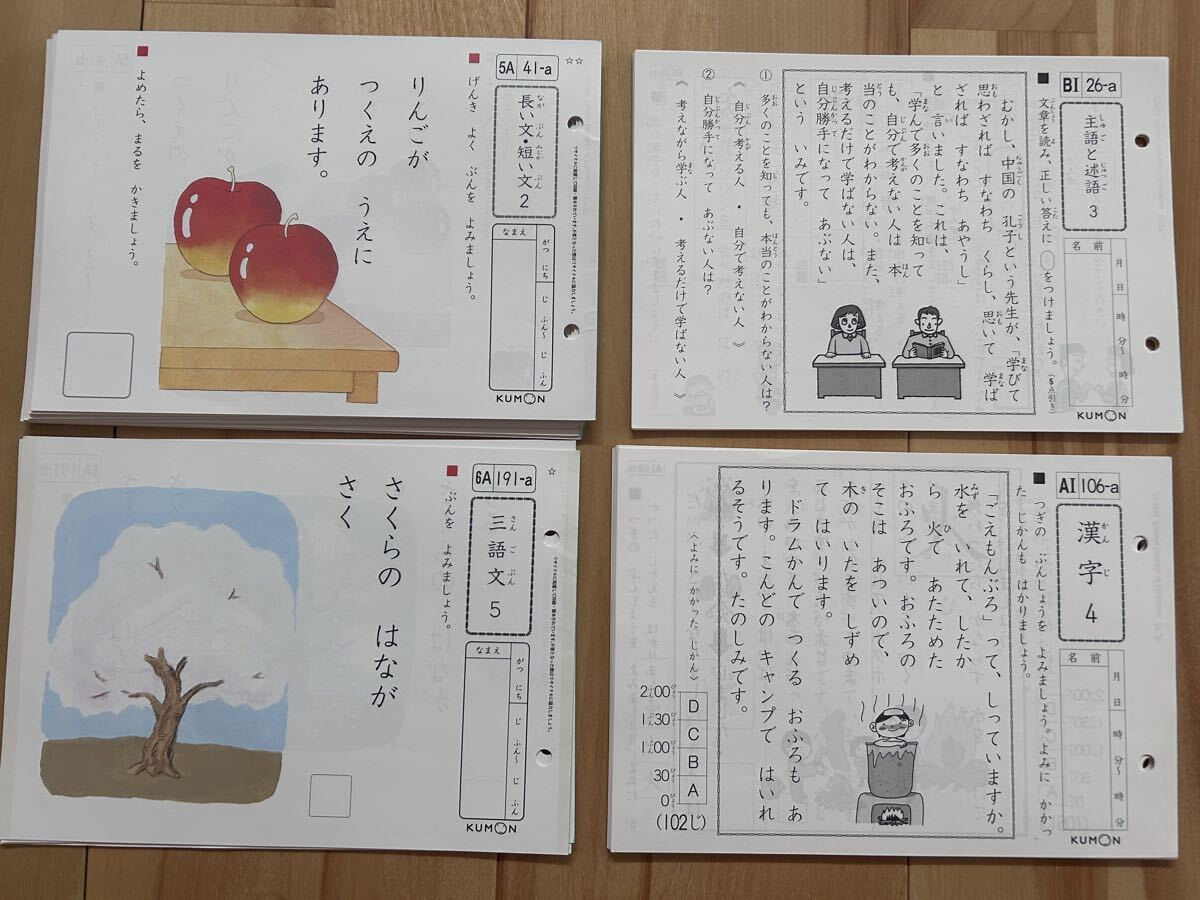 5A 41-a
☆☆
長い文・短い文2
なまえ
がつ にち
じ ふん～ じ ふん
KUMON
■ げんき よく ぶんを よみましょう。
りんごが
つくえの うえに
あります。
■ よめたら、まるを かきましょう。
BI 26-a
主語と述語 3
名前
月 日
時 分～ 時 分
KUMON
■ 文章を読み、正しい答えに○をつけましょう。(5点引き)
むかし、中国の 孔子という先生が、「学びて
思わざれば すなわち くらし、思いて 学ば
ざれば すなわち あやうし」
と 言いました。これは、
「学んで多くのことを知って
も、自分で考えない人は 本
当のことがわからない。また、
考えるだけで学ばない人は、
自分勝手になって あぶない」
という いみです。
① 多くのことを知っても、本当のことがわからない人は?
《 自分で考える人 ・ 自分で考えない人 》
② 自分勝手になって あぶない人は?
《 考えながら学ぶ人 ・ 考えるだけで学ばない人 》
6A 191-a
☆
三語文 5
なまえ
がつ にち
じ ふん～ じ ふん
KUMON
■ ぶんを よみましょう。
さくらの はなが
さく
AI 106-a
漢字 4
名前
月 日
時 分～ 時 分
KUMON
■ つぎの ぶんしょうを よみましょう。よみに かかっ
た じかんも はかりましょう。
「ごえもんぶろ」って、しっていますか。
水を いれて、したか
ら 火で あたためた
おふろです。おふろの
そこは あついので、
木の いたを しずめ
て はいります。
ドラムかんで つくる おふろも あ
ります。こんどの キャンプで はいれ
るそうです。たのしみです。
〈よみに かかった じかん〉
2:00 D
1:30 C
1:00 B
30 A
0
(102じ)